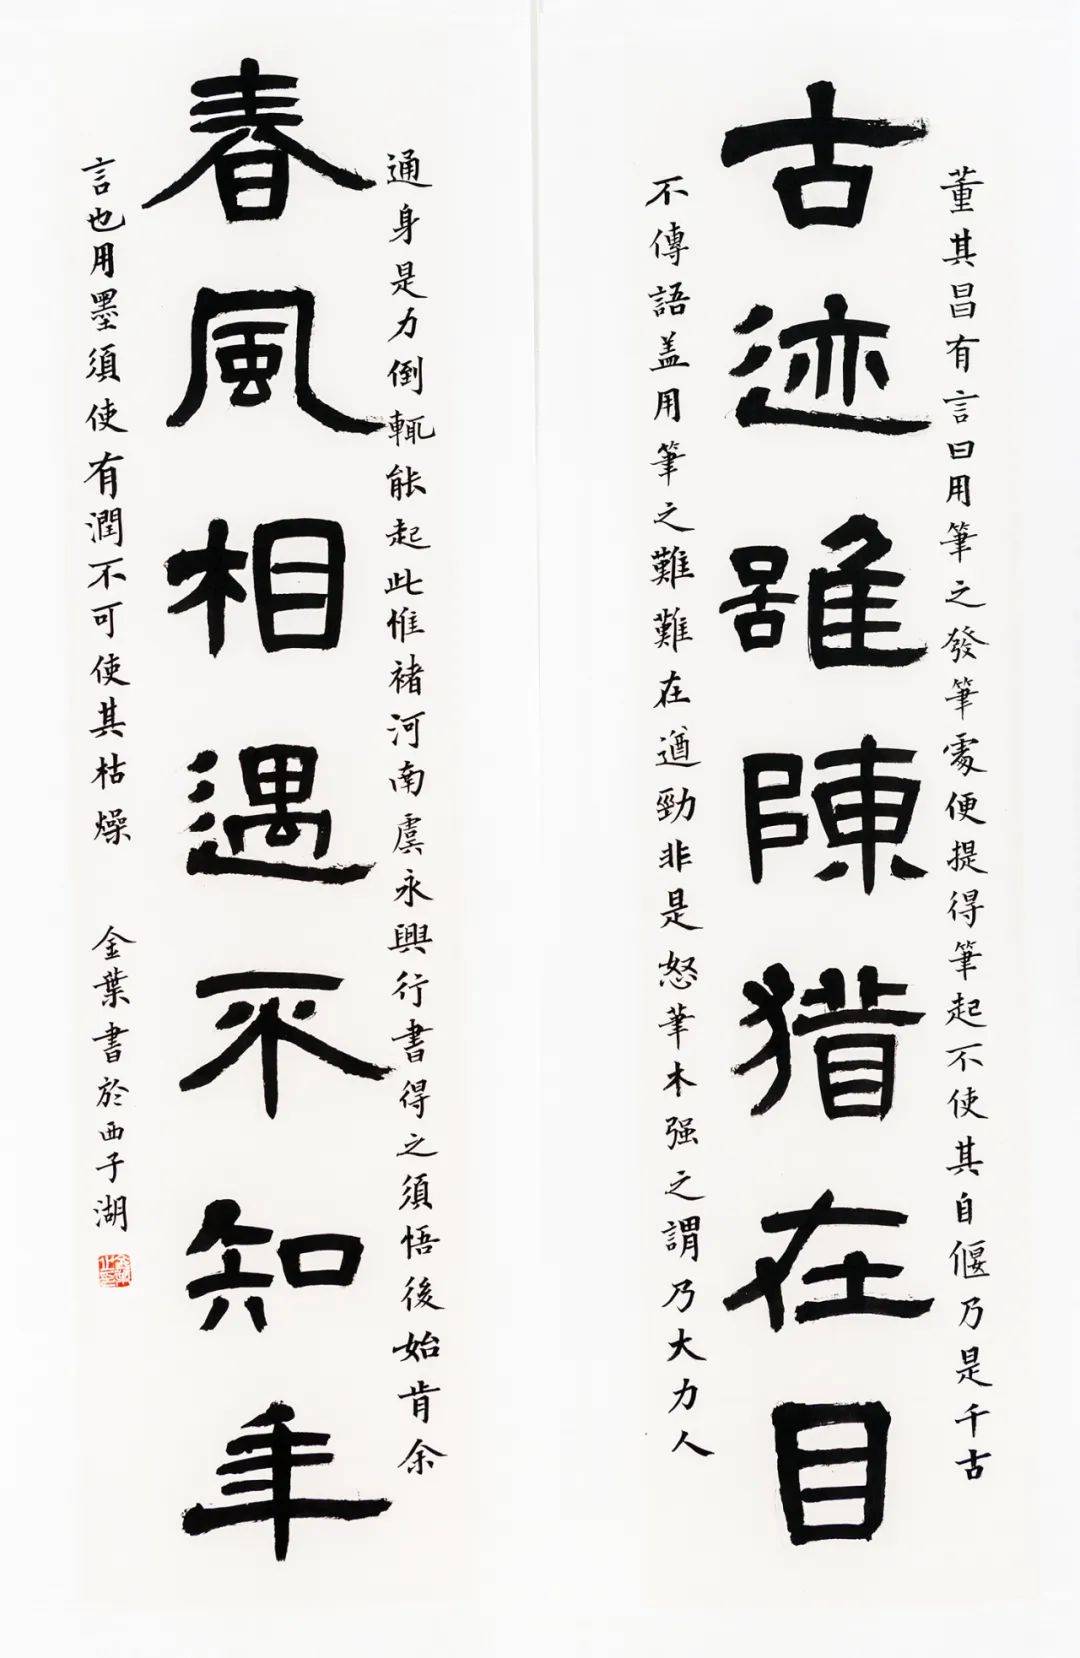 古迹雖陳猶在目
董其昌有言曰用筆之發筆處便提得筆起不使其自偃乃是千古
不傳語盖用筆之難難在遒勁非是怒筆木强之謂乃大力人
春風相遇不知年
通身是力倒輒能起此惟褚河南虞永興行書得之須悟後始肯余
言也用墨須使有潤不可使其枯燥 金葉書於西子湖